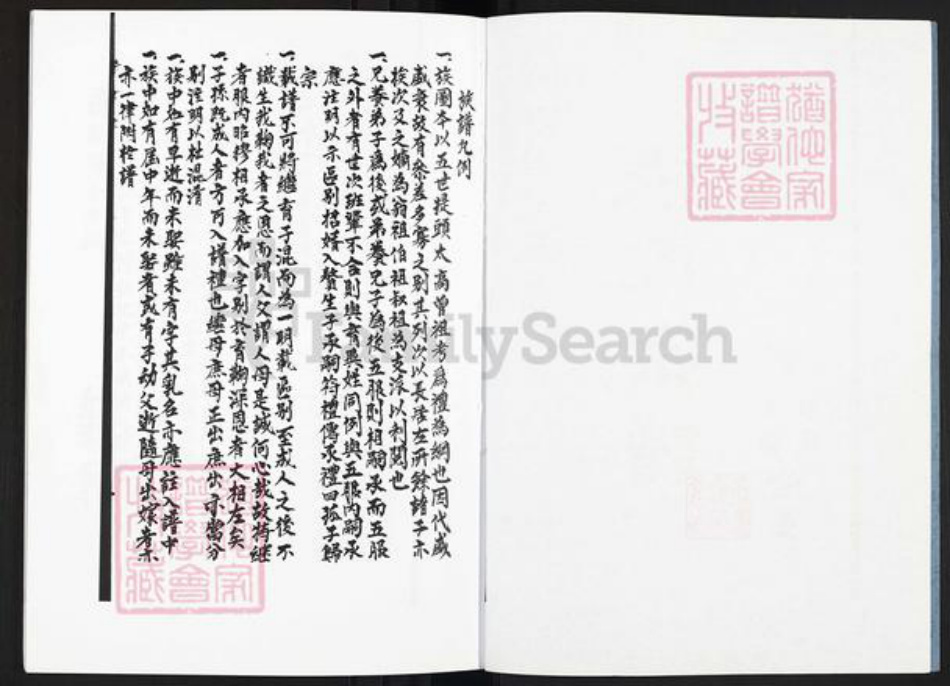 族譜凡例
一、族圖本以五世提頭太高曾祖考為禮為綱也因代盛
盛衰故有參差多寡之別其列次以長居左所餘諸子亦
挨次及之嫡為翁祖伯祖叔祖為支派以利閱也
一、兄養弟子為後或弟養兄子為後五服則相嗣承而五服
之外者有世次班輩不合則與育異姓同例與五服內嗣承
應註明以示區別招婿入贅生子承嗣符禮傳承禮曰孤子歸
宗
一、載譜不可將繼育子混而為一明載區別至成人之後不
識生我鞠我者之恩而謂人父謂人母是誠何心哉故將繼
者服內昭穆相承應加入字別於育鞠深恩者大相左矣
一、子孫既成人者方可入譜禮也繼母庶母正出庶出亦當分
別注明以杜混淆
一、族中如有早逝而未娶雖未有字其乳名亦應註入譜中
一、族中如有屆中年而未娶者或有子幼父逝隨母出嫁者亦
亦一律附於譜
猶他家
譜學會
收藏
FamilySearch